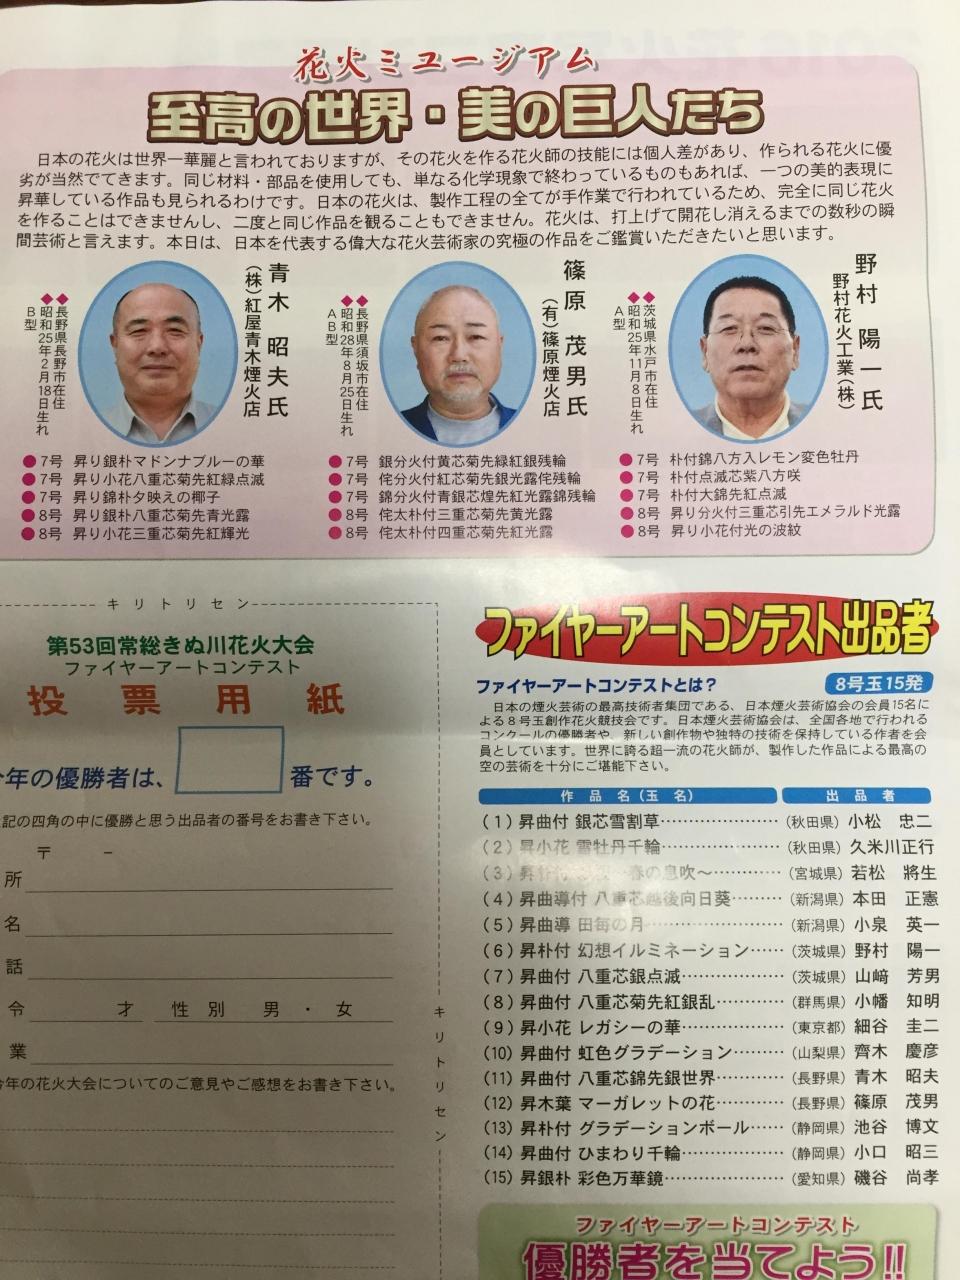 花火ミュージアム
至高の世界・美の巨人たち
日本の花火は世界一華麗と言われておりますが、その花火を作る花火師の技能には個人差があり、作られる花火に優
劣が当然でてきます。同じ材料・部品を使用しても、単なる化学現象で終わっているものもあれば、一つの美的表現に
昇華している作品も見られるわけです。日本の花火は、製作工程の全てが手作業で行われているため、完全に同じ花火
を作ることはできませんし、二度と同じ作品を観ることもできません。花火は、打上げて開花し消えるまでの数秒の瞬
間芸術と言えます。本日は、日本を代表する偉大な花火芸術家の究極の作品をご鑑賞いただきたいと思います。
青木 昭夫氏
(株)紅屋青木煙火店
◆長野県長野市在住
◆昭和25年2月18日生れ
B型
●7号 昇り銀朴マドンナブルーの華
●7号 昇り小花八重芯菊先紅緑点滅
●7号 昇り錦朴夕映えの椰子
●8号 昇り銀朴八重芯菊先青光露
●8号 昇り小花三重芯菊先紅輝光
篠原 茂男氏
(有)篠原煙火店
◆長野県須坂市在住
◆昭和28年8月25日生れ
AB型
●7号 銀分火付黄芯菊先緑紅銀残輪
●7号 侘分火付紅芯菊先銀光露侘残輪
●7号 錦分火付青銀芯煌先紅光露錦残輪
●8号 侘太朴付三重芯菊先黄光露
●8号 侘太朴付四重芯菊先紅光露
野村 陽一氏
野村花火工業(株)
◆茨城県水戸市在住
◆昭和25年11月8日生れ
A型
●7号 朴付錦八方入レモン変色牡丹
●7号 朴付点滅芯紫八方咲
●7号 朴付大錦先紅点滅
●8号 昇り分火付三重芯引先エメラルド光露
●8号 昇り小花付光の波紋
キリトリセン
第53回常総きぬ川花火大会
ファイヤーアートコンテスト
投票用紙
年の優勝者は、 番です。
記の四角の中に優勝と思う出品者の番号をお書き下さい。
〒 －
所
名
話
令 才 性別 男・女
業
年の花火大会についてのご意見やご感想をお書き下さい。
キリトリセン
ファイヤーアートコンテスト出品者
ファイヤーアートコンテストとは? 8号玉15発
日本の煙火芸術の最高技術者集団である、日本煙火芸術協会の会員15名に
よる8号玉創作花火競技会です。日本煙火芸術協会は、全国各地で行われる
コンクールの優勝者や、新しい創作物や独特の技術を保持している作者を会
員としています。世界に誇る超一流の花火師が、製作した作品による最高の
空の芸術を十分にご堪能下さい。
作品名(玉名) 出品者
(1)昇曲付 銀芯雪割草……………(秋田県)小松 忠二
(2)昇小花 雪牡丹千輪……………(秋田県)久米川正行
(3)昇朴付 春の息吹～…………(宮城県)若松 將生
(4)昇曲導付 八重芯越後向日葵………(新潟県)本田 正憲
(5)昇曲導 田毎の月………………(新潟県)小泉 英一
(6)昇朴付 幻想イルミネーション……(茨城県)野村 陽一
(7)昇曲付 八重芯銀点滅…………(茨城県)山﨑 芳男
(8)昇曲付 八重芯菊先紅銀乱………(群馬県)小幡 知明
(9)昇小花 レガシーの華……………(東京都)細谷 圭二
(10)昇曲付 虹色グラデーション………(山梨県)齊木 慶彦
(11)昇曲付 八重芯錦先銀世界………(長野県)青木 昭夫
(12)昇木葉 マーガレットの花…………(長野県)篠原 茂男
(13)昇朴付 グラデーションボール……(静岡県)池谷 博文
(14)昇曲付 ひまわり千輪……………(静岡県)小口 昭三
(15)昇銀朴 彩色万華鏡………………(愛知県)磯谷 尚孝
ファイヤーアートコンテスト
優勝者を当てよう!!